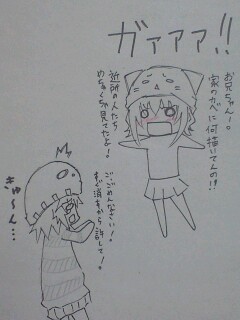 ガァァァ!!
お兄ちゃん!。
家のカベに何描いてんの!?
近所の人たち
めちゃくちゃ見てたよ!
ご・ごめんなさい!
すぐ消すから許して!。
きゅ〜ん…